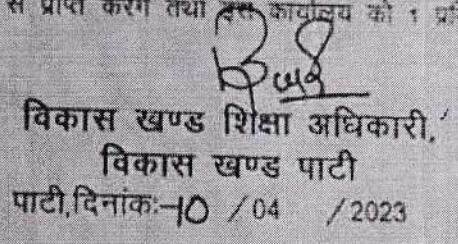 से प्राप्त करेंगे तथा इस कार्यालय को 1
विकास खण्ड शिक्षा अधिकारी,
विकास खण्ड पाटी
पाटी,दिनांकः-10 /04 /2023